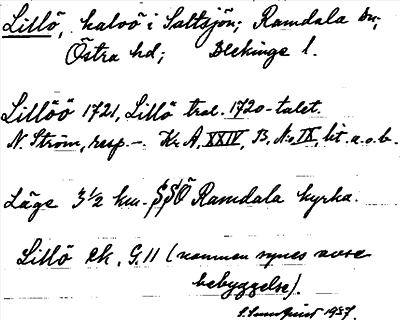 Lillö, halvö i Saltsjön; Ramdala sn;
Östra hd; Blekinge l.
Lillöö 1721, Lillö trol. 1720-talet.
N. Ström, resp. –. Kr. A. XXIV, B. No IX, lit. a. o. b.
Läge 3½ km. SSÖ Ramdala kyrka.
Lillö ek. G.11 (namnen synes avse
bebyggelse).
1937.